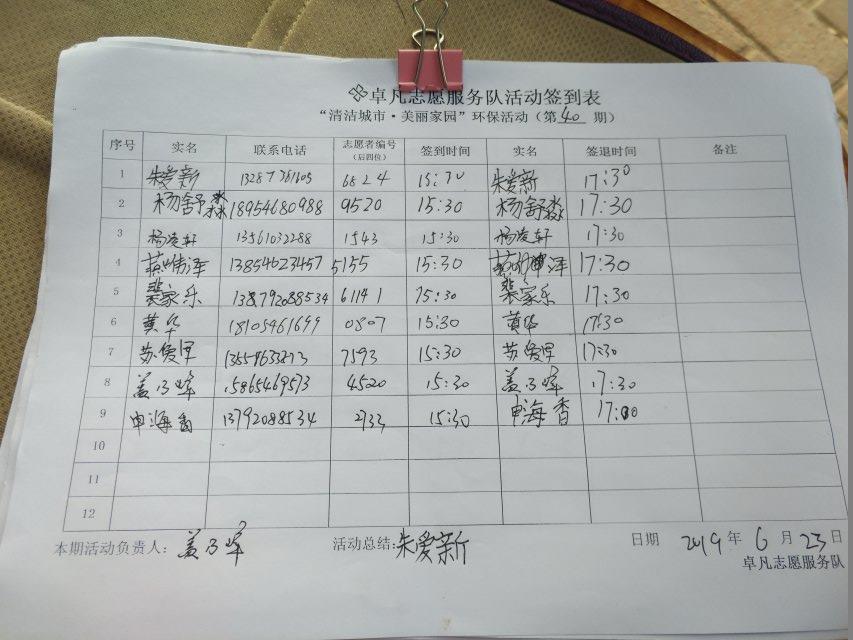 卓凡志愿服务队活动签到表
“清洁城市·美丽家园”环保活动(第 40 期)
序号 实名 联系电话 志愿者编号(后四位) 签到时间 实名 签退时间 备注
1 朱爱新 6824 朱爱新 17:30
2 杨舒淼 18954680988 9520 15:30 杨舒淼 17:30
3 杨凌轩 13561032288 1543 15:30 杨凌轩 17:30
4 13854623457 5155 15:30 17:30
5 裴家乐 138792088534 61141 15:30 裴家乐 17:30
6 黄华 18105461699 0807 15:30 黄华 17:30
7 7593 15:30 17:30
8 盖乃峰 5865469573 4520 15:30 盖乃峰 17:30
9 申海香 13792088534 2733 15:30 申海香
10
11
12
本期活动负责人: 盖乃峰 活动总结: 朱爱新 日期 2019 年 6 月 23 日
卓凡志愿服务队